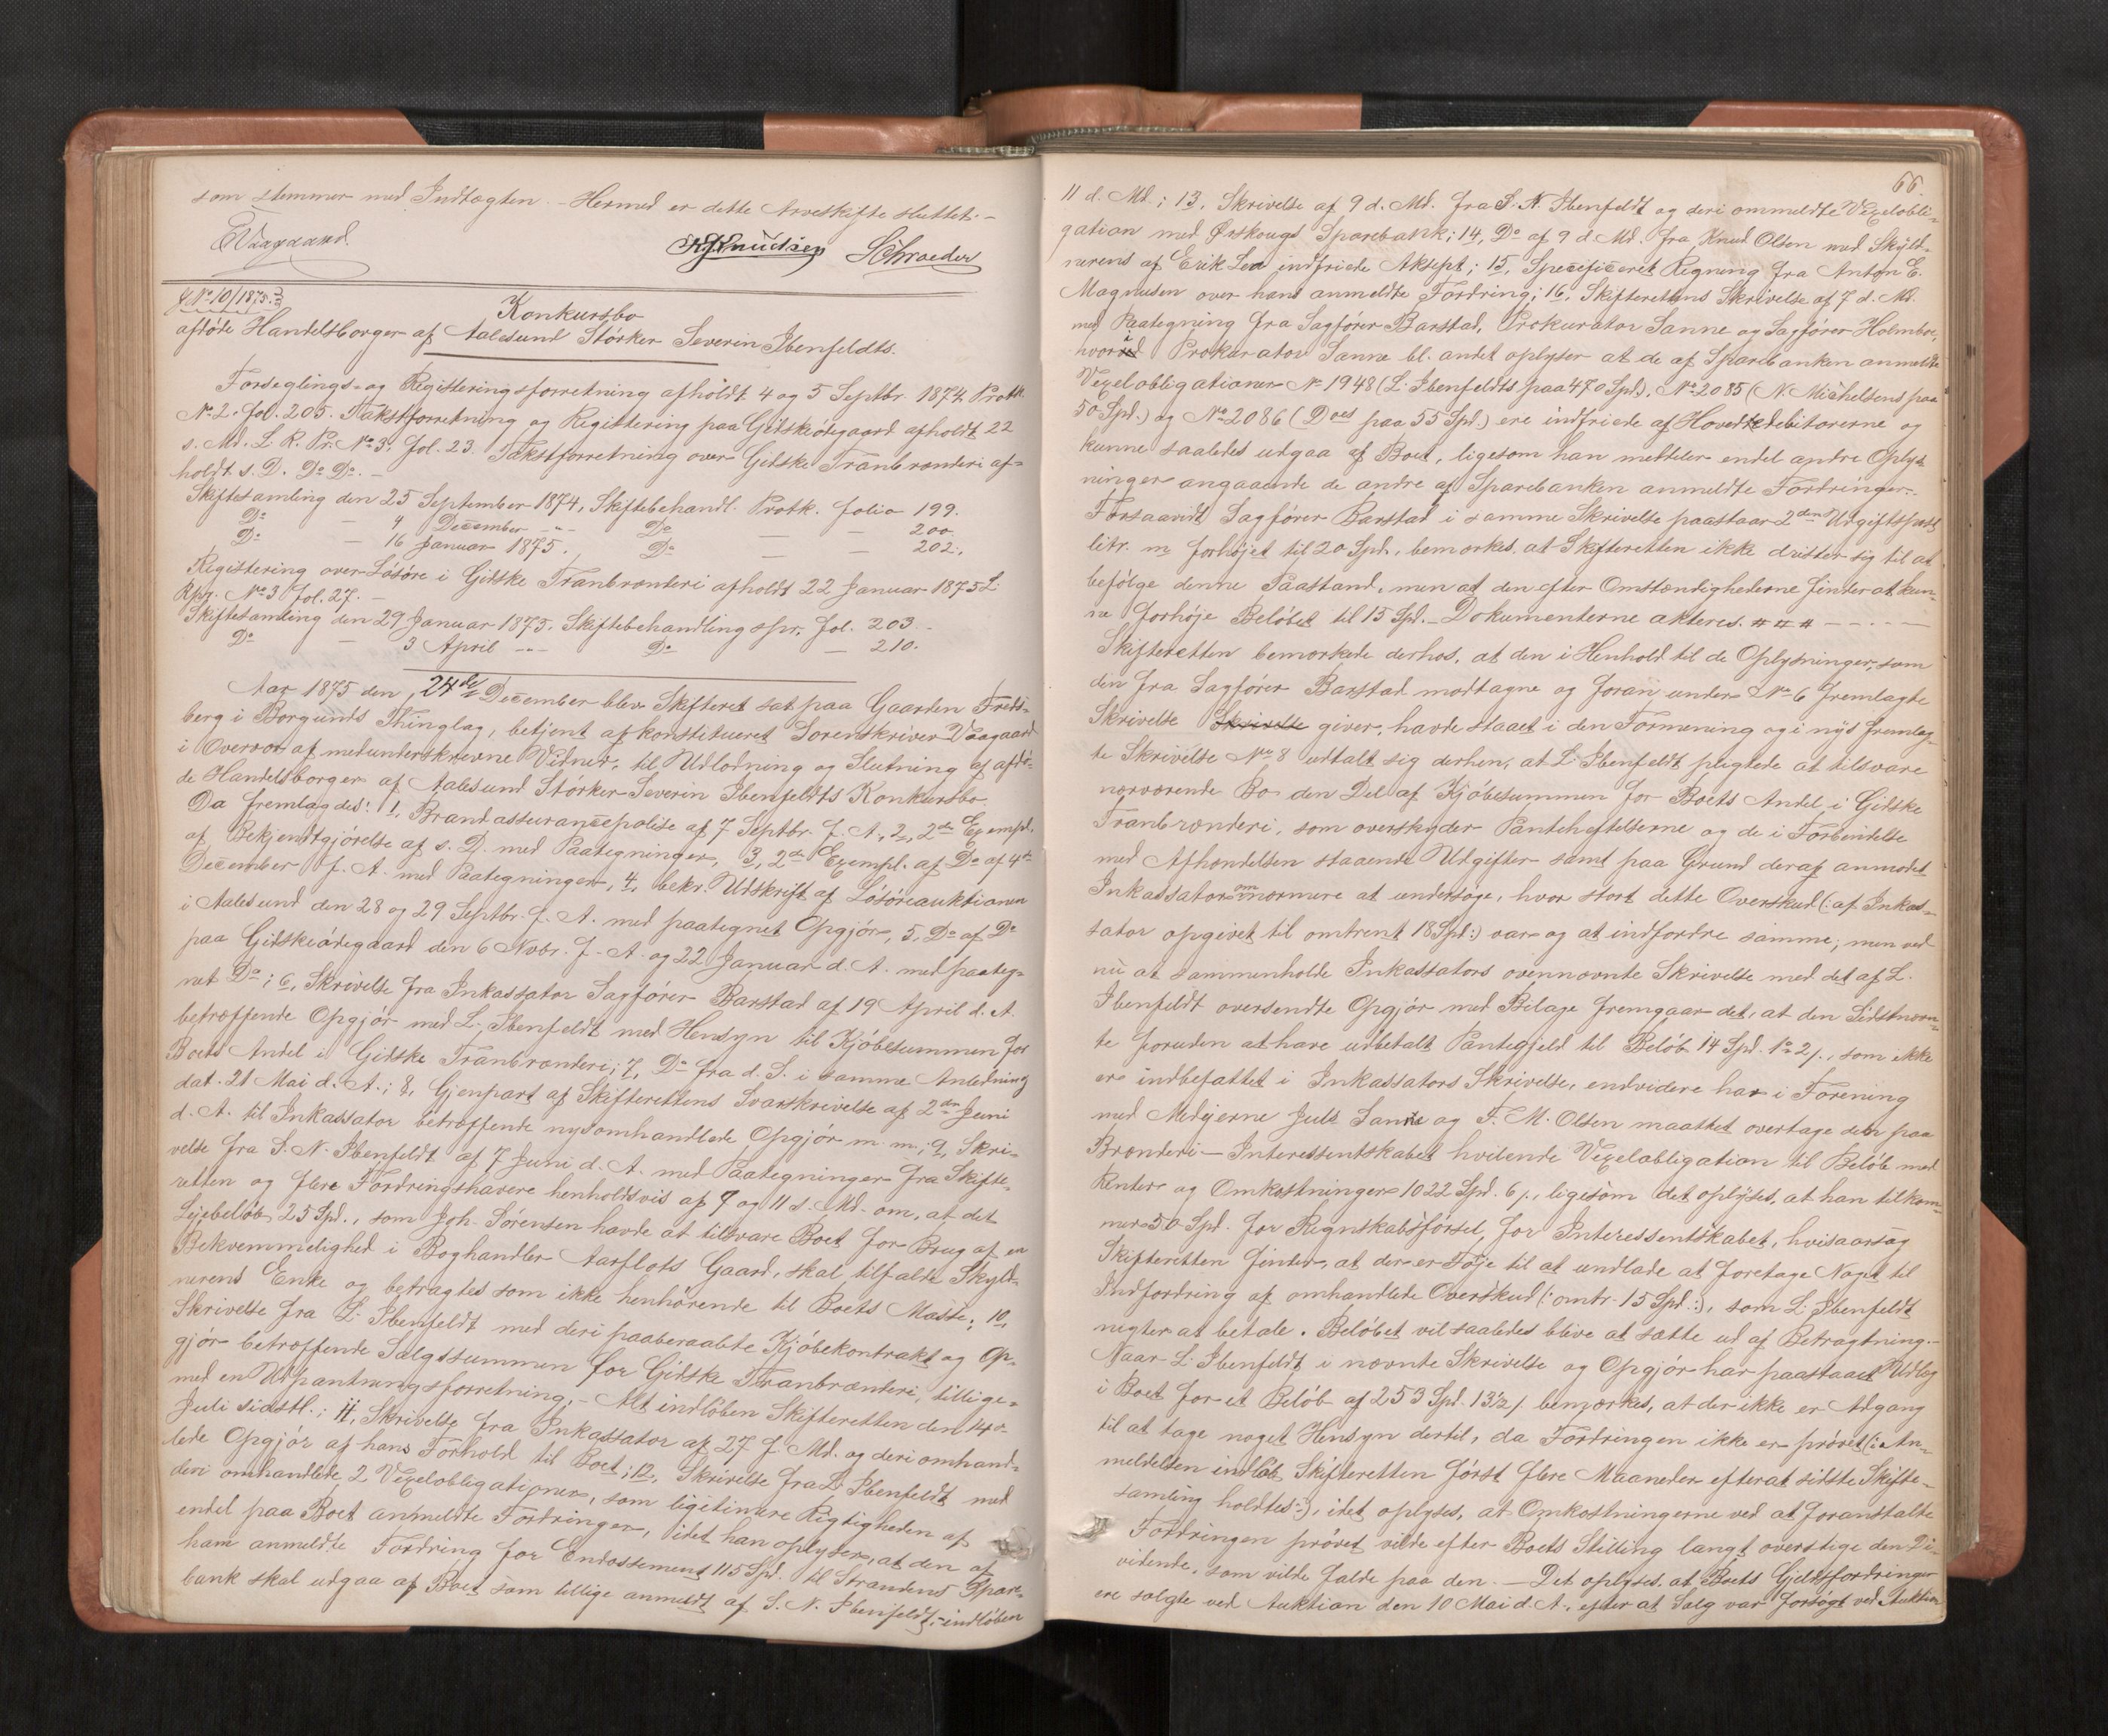 som stemmer med Indtægten. - Hermed er dette Arveskifte sluttet. -
EVaagaard. K. Knudsen Schroeder
No 10/1875.
Konkursbo
afdøde Handelsborger af Aalesund Stórker Severin Ibenfeldts.
Forseglings- og Registeringsforretning afholdt 4 og 5 Septbr. 1874 Protk.
No 2. fol. 205. Takstforretning og Registering paa Gidskeødegaard afholdt 22
s. Md. L. R. Pr. No 3. fol. 23. Takstforretning over Gidske Tranbrænderi af-
holdt s. D. Do Do. -
Skiftesamling den 25 September 1874, Skiftebehandl. Protk. folio 199.
Do - 4 December -"- Do - - 200
Do - 16 Januar 1875. Do - - 202.
Registering over Lósóre i Gidske Tranbrænderi afholdt 22 Januar 1875 L.
Rpr. No 3 fol. 27. -
Skiftesamling den 29 Januar 1875. Skiftebehandlingspr. fol. 203. -
Do - 3 April -"- Do - 210.
Aar 1875 den 24de December blev Skifteret sat paa Gaarden Freds-
berg i Borgunds Thinglag, betjent af konstitueret Sorenskriver Vaagaard
i Overvær af medunderskrevne Vidner, til Udlodning og Slutning af afdø-
de Handelsborger af Aalesund Stórker Severin Ibenfeldts Konkursbo.
Da fremlagdes: 1, Brandassurancepolise af 7 Septbr. f. A., 2, 2det Exempl.
af Bekjendtgjórelse af s. D. med Paategninger, 3, 2det Exempl. af Do af 4de
December f. A. med Paategninger, 4, bekr. Udskrift af Lósóreauktionen
i Aalesund den 28 og 29 Septbr. f. A. med paategnet Opgjór, 5, Do af Do
paa Gidskeødegaard den 6 Novbr. f. A. og 22 Januar d. A. med paateg-
net Do; 6, Skrivelse fra Inkassator Sagfører Barstad af 19 April d. A.
betræffende Opgjór med L. Ibenfeldt med Hensyn til Kjóbesummen for
Boets Andel i Gidske Tranbrænderi; 7, Do fra d. S. i samme Anledning
dat. 21 Mai d. A.; 8, Gjenpart af Skifterettens Svarskrivelse af 2den Juni
d. A. til Inkassator betræffende nysomhandlede Opgjór m. m.; 9, Skri-
velse fra S. N. Ibenfeldt af 7 Juni d. A. med Paategninger fra Skifte-
retten og flere Fordringshavere henholdsvis af 7 og 11 s. Md. om, at det
Lejebeløb 25 Spd., som Joh. Sórensen havde at tilsvare Boet for Brug af en
Bekvemmelighed i Boghandler Aarflots Gaard, skal tilfalde Skyld-
nerens Enke og betragtes som ikke henhórende til Boets Masse; 10,
Skrivelse fra L. Ibenfeldt med deri paaberaabte Kjóbekontrakt og Op-
gjór betræffende Salgssummen for Gidske Tranbrænderi, tillige-
med en Udpantningsforretning, - Alt indlóben Skifteretten den 14de
Juli sidstl.; 11, Skrivelse fra Inkassator af 27 f. Md. og deri omhand-
lede Opgjór af hans Forhold til Boet; 12, Skrivelse fra L. Ibenfeldt med
deri omhandlede 2 Vexelobligationer, som ligitimere Rigtigheden af
endel paa Boet anmeldte Fordringer, idet han oplyser, at den af
ham anmeldte Fordring for Endossement 115 Spd. til Strandens Spare-
bank skal udgaa af Boet som tillige anmeldt af S. N. Ibenfeldt; - indlóben
66.
11 d. Md.; 13, Skrivelse af 9 d. Md. fra S. N. Ibenfeldt og deri ommeldte Vexelobli-
gation med Ørskougs Sparebank; 14, Do af 9 d. Md. fra Knud Olsen med Skyld-
nerens af Erik Lea indfriede Aksept; 15, Specificeret Regning fra Anton E.
Magnusen over hans anmeldte Fordring; 16, Skifterettens Skrivelse af 7 d. Md.
med Paategning fra Sagfører Barstad, Prokurator Sanne og Sagfører Holmboe,
hvori Prokurator Sanne bl. andet oplyser at de af Sparebanken anmeldte
Vexelobligationer No 1948 (L. Ibenfeldts paa 470 Spd), No 2085 (N. Michelsens paa
50 Spd.) og No 2086 (Does paa 55 Spd.) ere indfriede af Hoveddebitorerne og
kunne saaledes udgaa af Boet, ligesom han meddeler endel andre Oplys-
ninger angaaende de andre af Sparebanken anmeldte Fordringer.
Forsaavidt Sagfører Barstad i samme Skrivelse paastaar 2den Udgiftspost
litr. m forhøjet til 20 Spd., bemærkes, at Skifteretten ikke drister sig til at
befólge denne Paastand, men at den efter Omstændighederne finder at kun-
ne forhøje Beløbet til 15 Spd. - Dokumenterne akteres. # # # - - - -
Skifteretten bemærkede derhos, at den i Henhold til de Oplysninger, som
den fra Sagfører Barstad modtagne og foran under No 6 fremlagte
Skrivelse Skrivelse giver, havde staaet i den Formening og i nys fremlag-
te Skrivelse No 8 udtalt sig derhen, at L. Ibenfeldt pligtede at tilsvare
nærværende Bo den Del af Kjóbesummen for Boets Andel i Gidske
Tranbrænderi, som overskyder Pantehæftelserne og de i Forbindelse
med Afhændelsen staaende Udgifter samt paa Grund deraf anmodet
Inkassator om nærmere at undersøge, hvor stort dette Overskud (: af Inkas-
sator opgivet til omtrent 18 Spd :) var og at indfordre samme; men ved
nu at sammenholde Inkassators ovennævnte Skrivelse med det af L.
Ibenfeldt oversendte Opgjór med Bilage fremgaar det, at den Sidstnævn-
te foruden at have udbetalt Pantegjeld til Beløb 14 Spd. 1 2, som ikke
er indbefattet i Inkassators Skrivelse, endvidere har i Forening
med Medejerne Juls Sanne og F. M. Olsen maattet overtage den paa
Brænderi-Interessentskabet hvilende Vexelobligation til Beløb med
Renter og Omkostninger 1022 Spd. 6, ligesom det oplyses, at han tilkom-
mer 50 Spd. for Regnskabsførsel for Interessentskabet, hvisaarsag
Skifteretten finder, at der er Føje til at undlade at foretage Noget til
Indfordring af omhandlede Overskud (: omtr. 15 Spd :), som L. Ibenfeldt
negter at betale. Beløbet vil saaledes blive at sætte ud af Betragtning. -
Naar L. Ibenfeldt i nævnte Skrivelse og Opgjór har paastaaet Udlæg
i Boet for et Beløb af 253 Spd. 13½ bemærkes, at der ikke er Adgang
til at tage noget Hensyn dertil, da Fordringen ikke er prøvet (: An-
meldelsen indløb Skifteretten først flere Maaneder efterat sidste Skifte-
samling holdtes :), idet oplyses, at Omkostningerne ved at foranstalte
Fordringen prøvet vilde efter Boets Stilling langt overstige den Di-
vidende, som vilde falde paa den. - Det oplyses, at Boets Gjeldsfordringer
ere solgte ved Auktion den 10 Mai d. A., efter at Salg var forsøgt ved Auktion